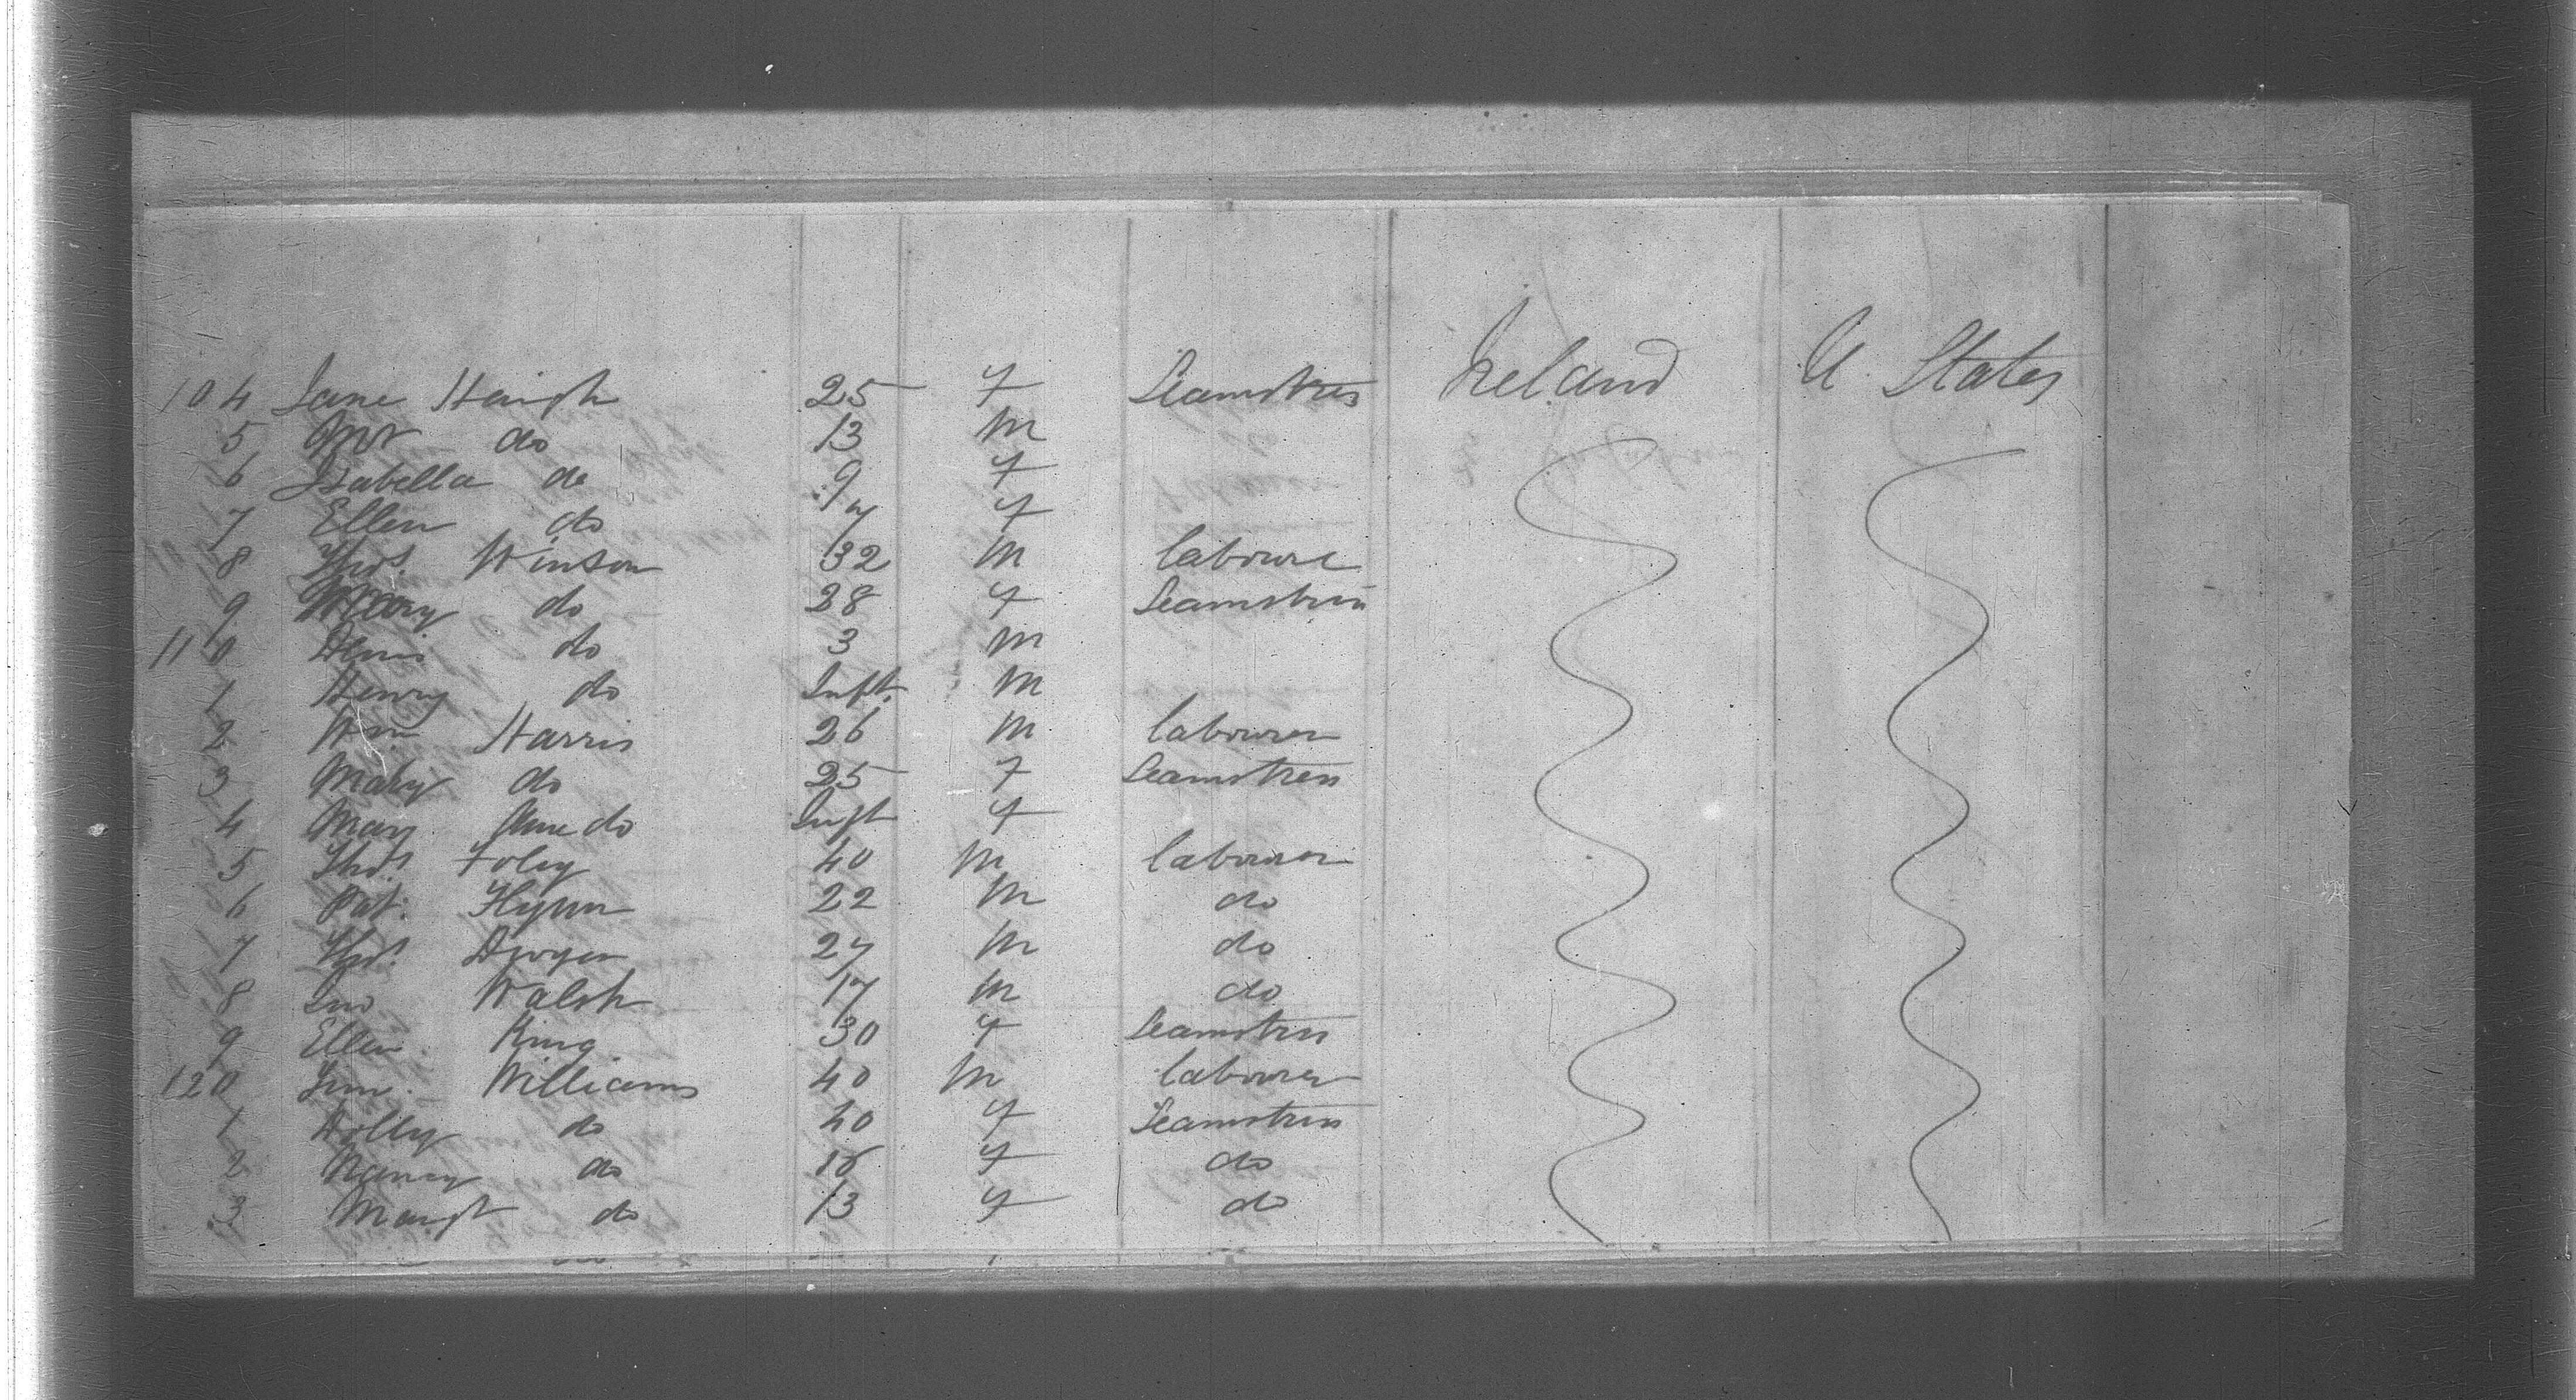 104 Jane Haigh 25 f Seamstres Ireland U. States
5 do 13 m
6 Isabella do 9 f
7 Ellen do 7 f
8 Thos. Winson 32 m laboure
9 Mary do 28 f Seamstress
110 Denis do 3 m
1 Henry do Inft. m
2 Wm Harris 26 m labourer
3 Mary do 25 f Seamstress
4 Mary Ann do Inft f
5 Thos. Foley 40 m labourer
6 Pat. Flynn 22 m do
7 Thos. Dwyer 27 m do
8 Jno Walsh 17 m do
9 Ellen King 30 f Seamstress
120 Williams 40 m labourer
1 Dolly do 40 f Seamstress
2 Nancy do 16 f do
3 Margt do 13 f do